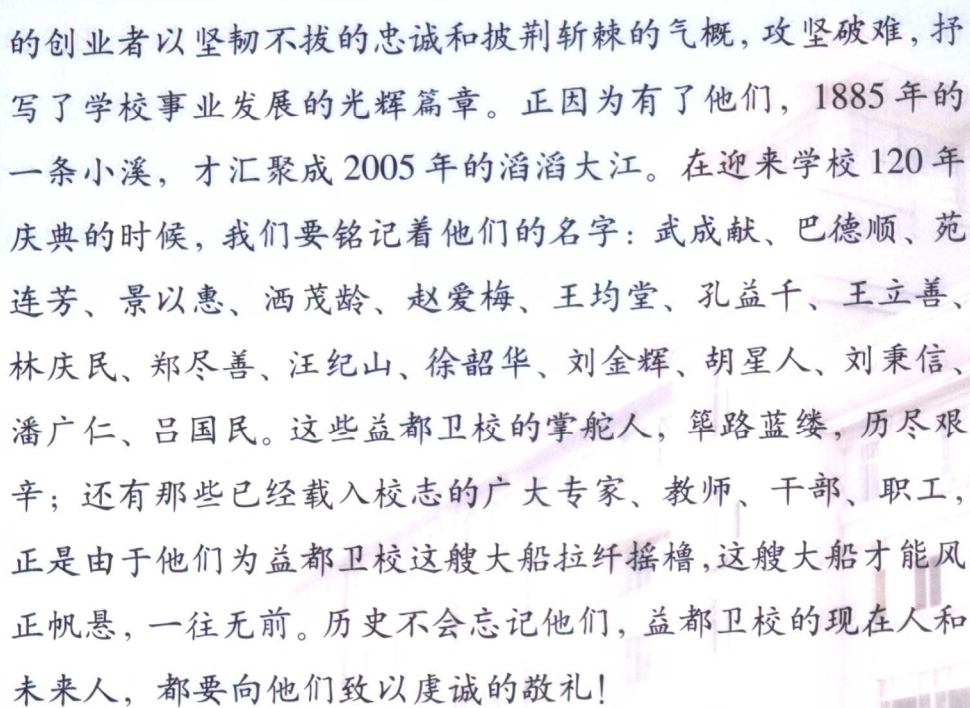 的创业者以坚韧不拔的忠诚和披荆斩棘的气概，攻坚破难，抒
写了学校事业发展的光辉篇章。正因为有了他们，1885年的
一条小溪，才汇聚成2005年的滔滔大江。在迎来学校120年
庆典的时候，我们要铭记着他们的名字：武成献、巴德顺、苑
连芳、景以惠、洒茂龄、赵爱梅、王均堂、孔益千、王立善、
林庆民、郑尽善、汪纪山、徐韶华、刘金辉、胡星人、刘秉信、
潘广仁、吕国民。这些益都卫校的掌舵人，筚路蓝缕，历尽艰
辛；还有那些已经载入校志的广大专家、教师、干部、职工，
正是由于他们为益都卫校这艘大船拉纤摇橹，这艘大船才能风
正帆悬，一往无前。历史不会忘记他们，益都卫校的现在人和
未来人，都要向他们致以虔诚的敬礼！